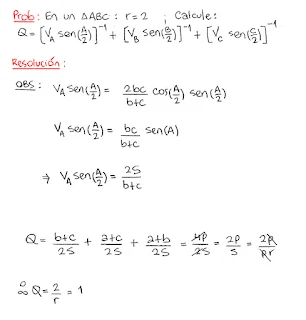 Prob: En un △ABC : r=2 ; Calcule:
Q = [V_A sen(A/2)]^-1 + [V_B sen(B/2)]^-1 + [V_C sen(C/2)]^-1
Resolución:
OBS: V_A sen(A/2) = 2bc/b+c cos(A/2) sen(A/2)
V_A sen(A/2) = bc/b+c sen(A)
⇒ V_A sen(A/2) = 2S/b+c
Q = b+c/2S + a+c/2S + a+b/2S = 4p/2S = 2p/S = 2p/pr
∴ Q = 2/r = 1